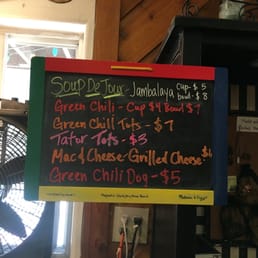 Soup De Tour - Jambalaya Cup - $5
bowl - $8
Green Chili - Cup $4 Bowl $7
Green Chili Tots - $7
Tator Tots - $3
Mac & Cheese - Grilled Cheese $6
Green Chili Dog - $5